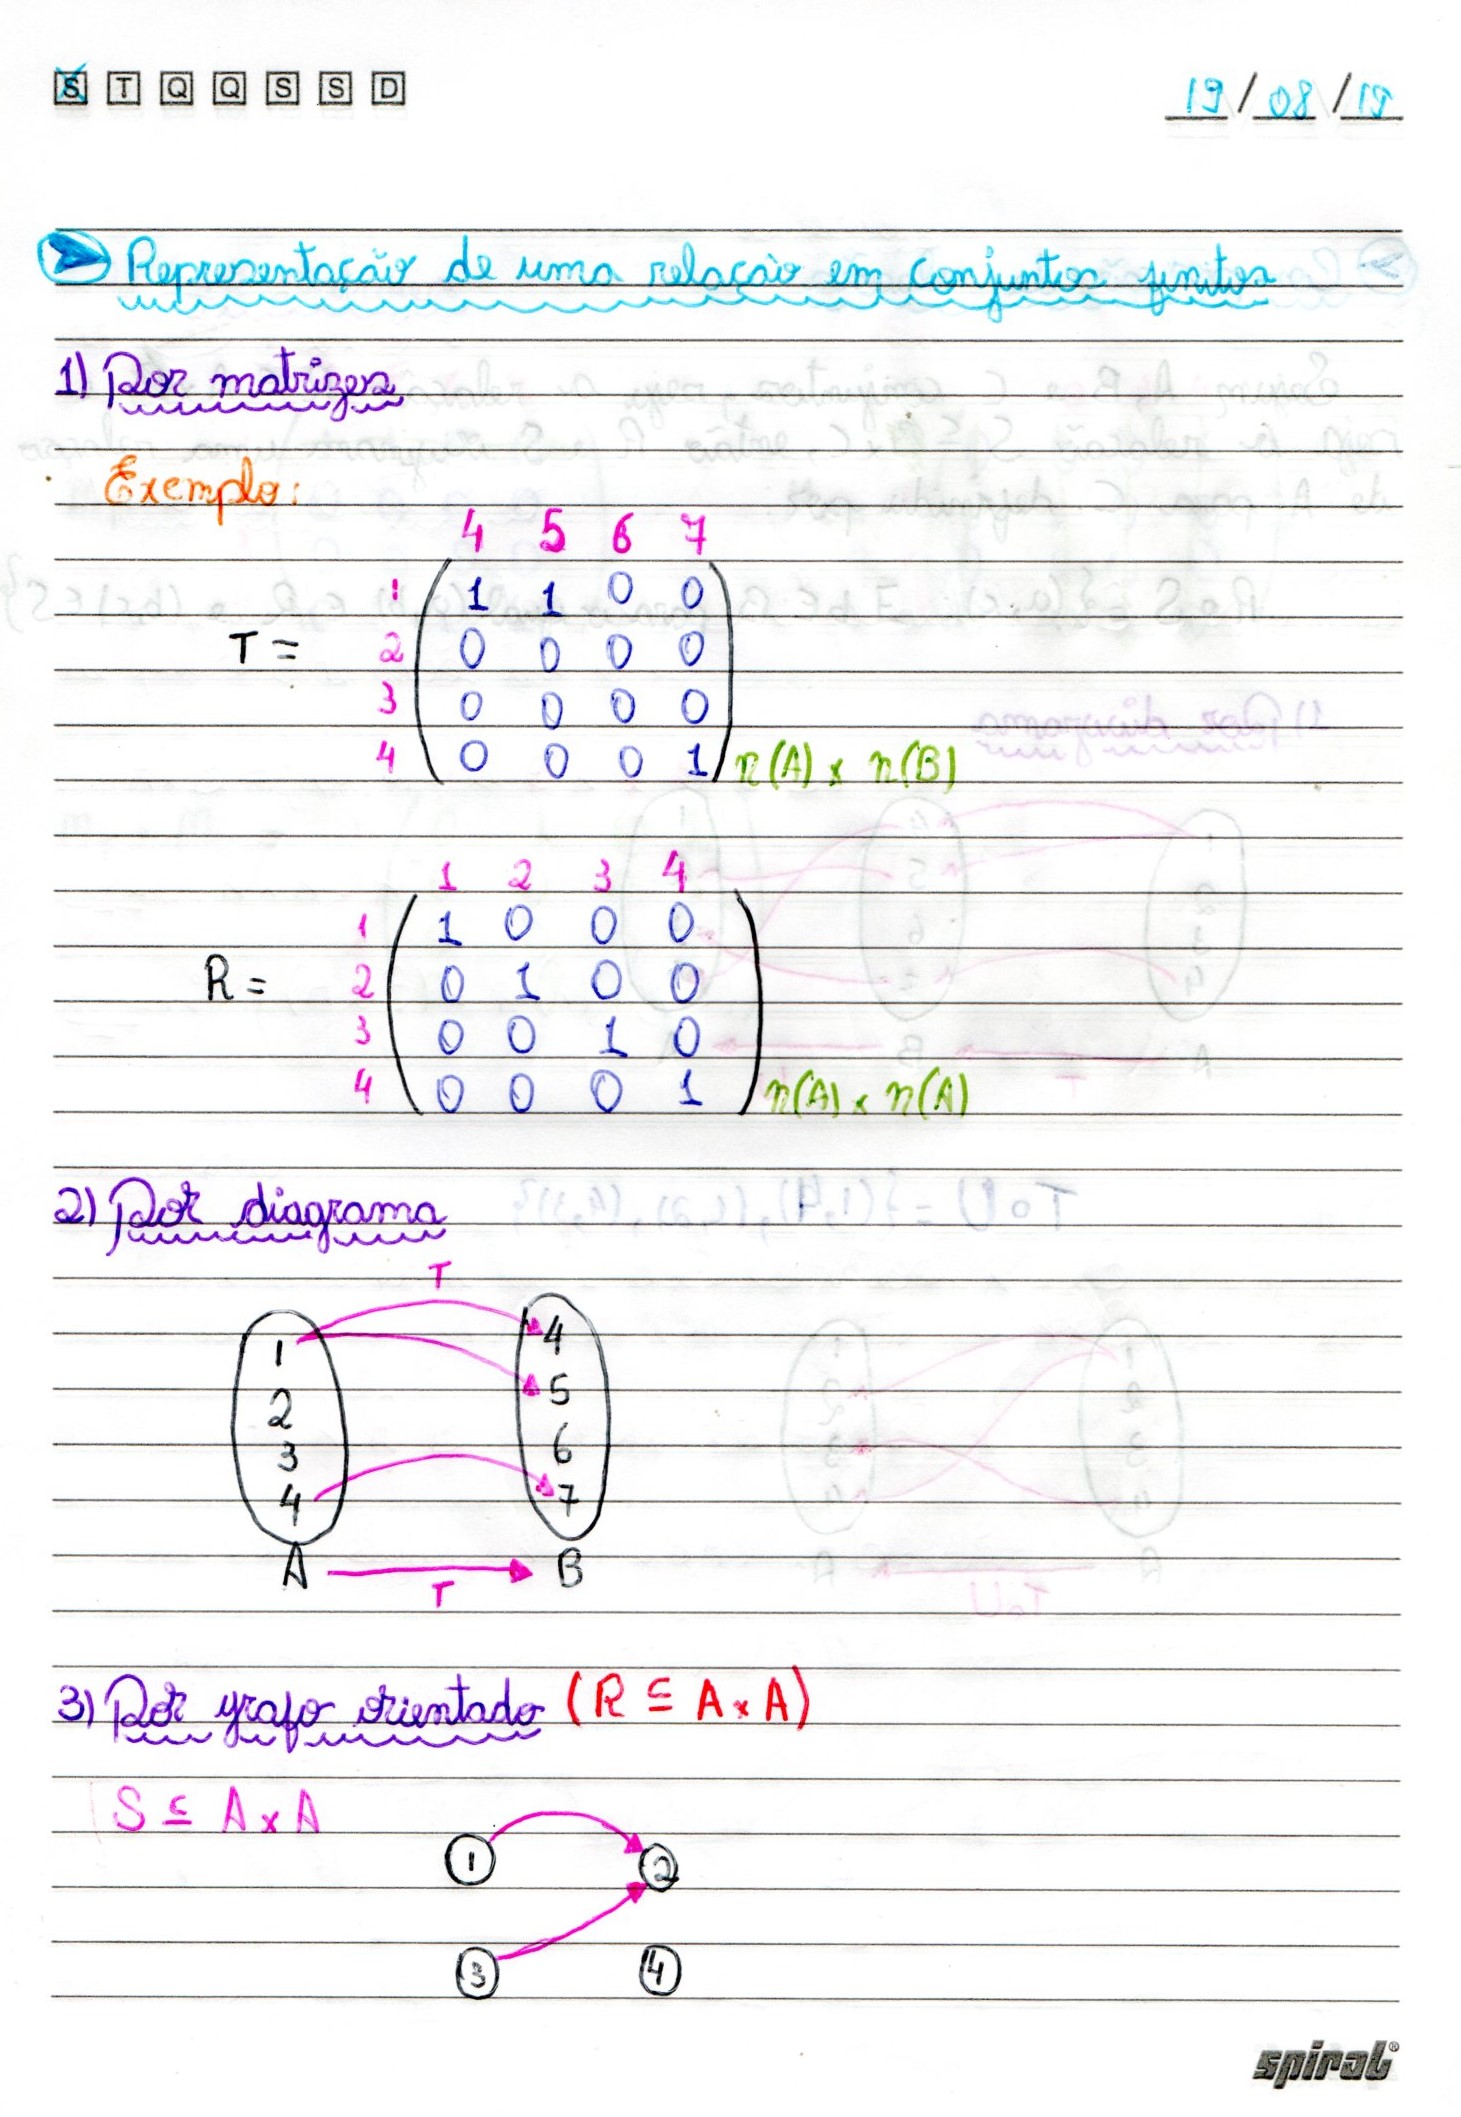 S T Q Q S S D
19/08/19
Representação de uma relação em conjuntos finitos
1) Por matrizes
Exemplo:
4 5 6 7
1 1 1 0 0
T = 2 0 0 0 0
3 0 0 0 0
4 0 0 0 1 n(A) x n(B)
1 2 3 4
1 1 0 0 0
R = 2 0 1 0 0
3 0 0 1 0
4 0 0 0 1 n(A) x n(A)
2) Por diagrama
T
1 4
2 5
3 6
4 7
A B
T
3) Por grafo orientado (R ⊆ A x A)
S ⊆ A x A
1 2
3 4
spiral®